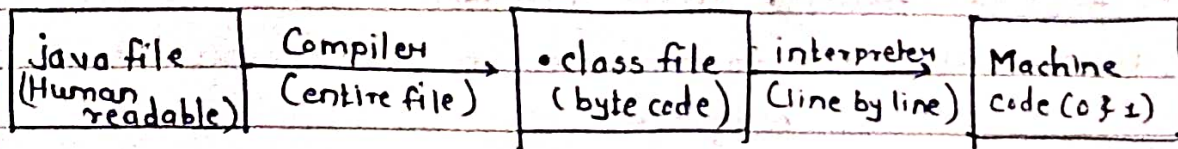 java file
(Human
readable)
Compiler
(entire file)
.class file
(byte code)
interpreter
(line by line)
Machine
code (0 & 1)